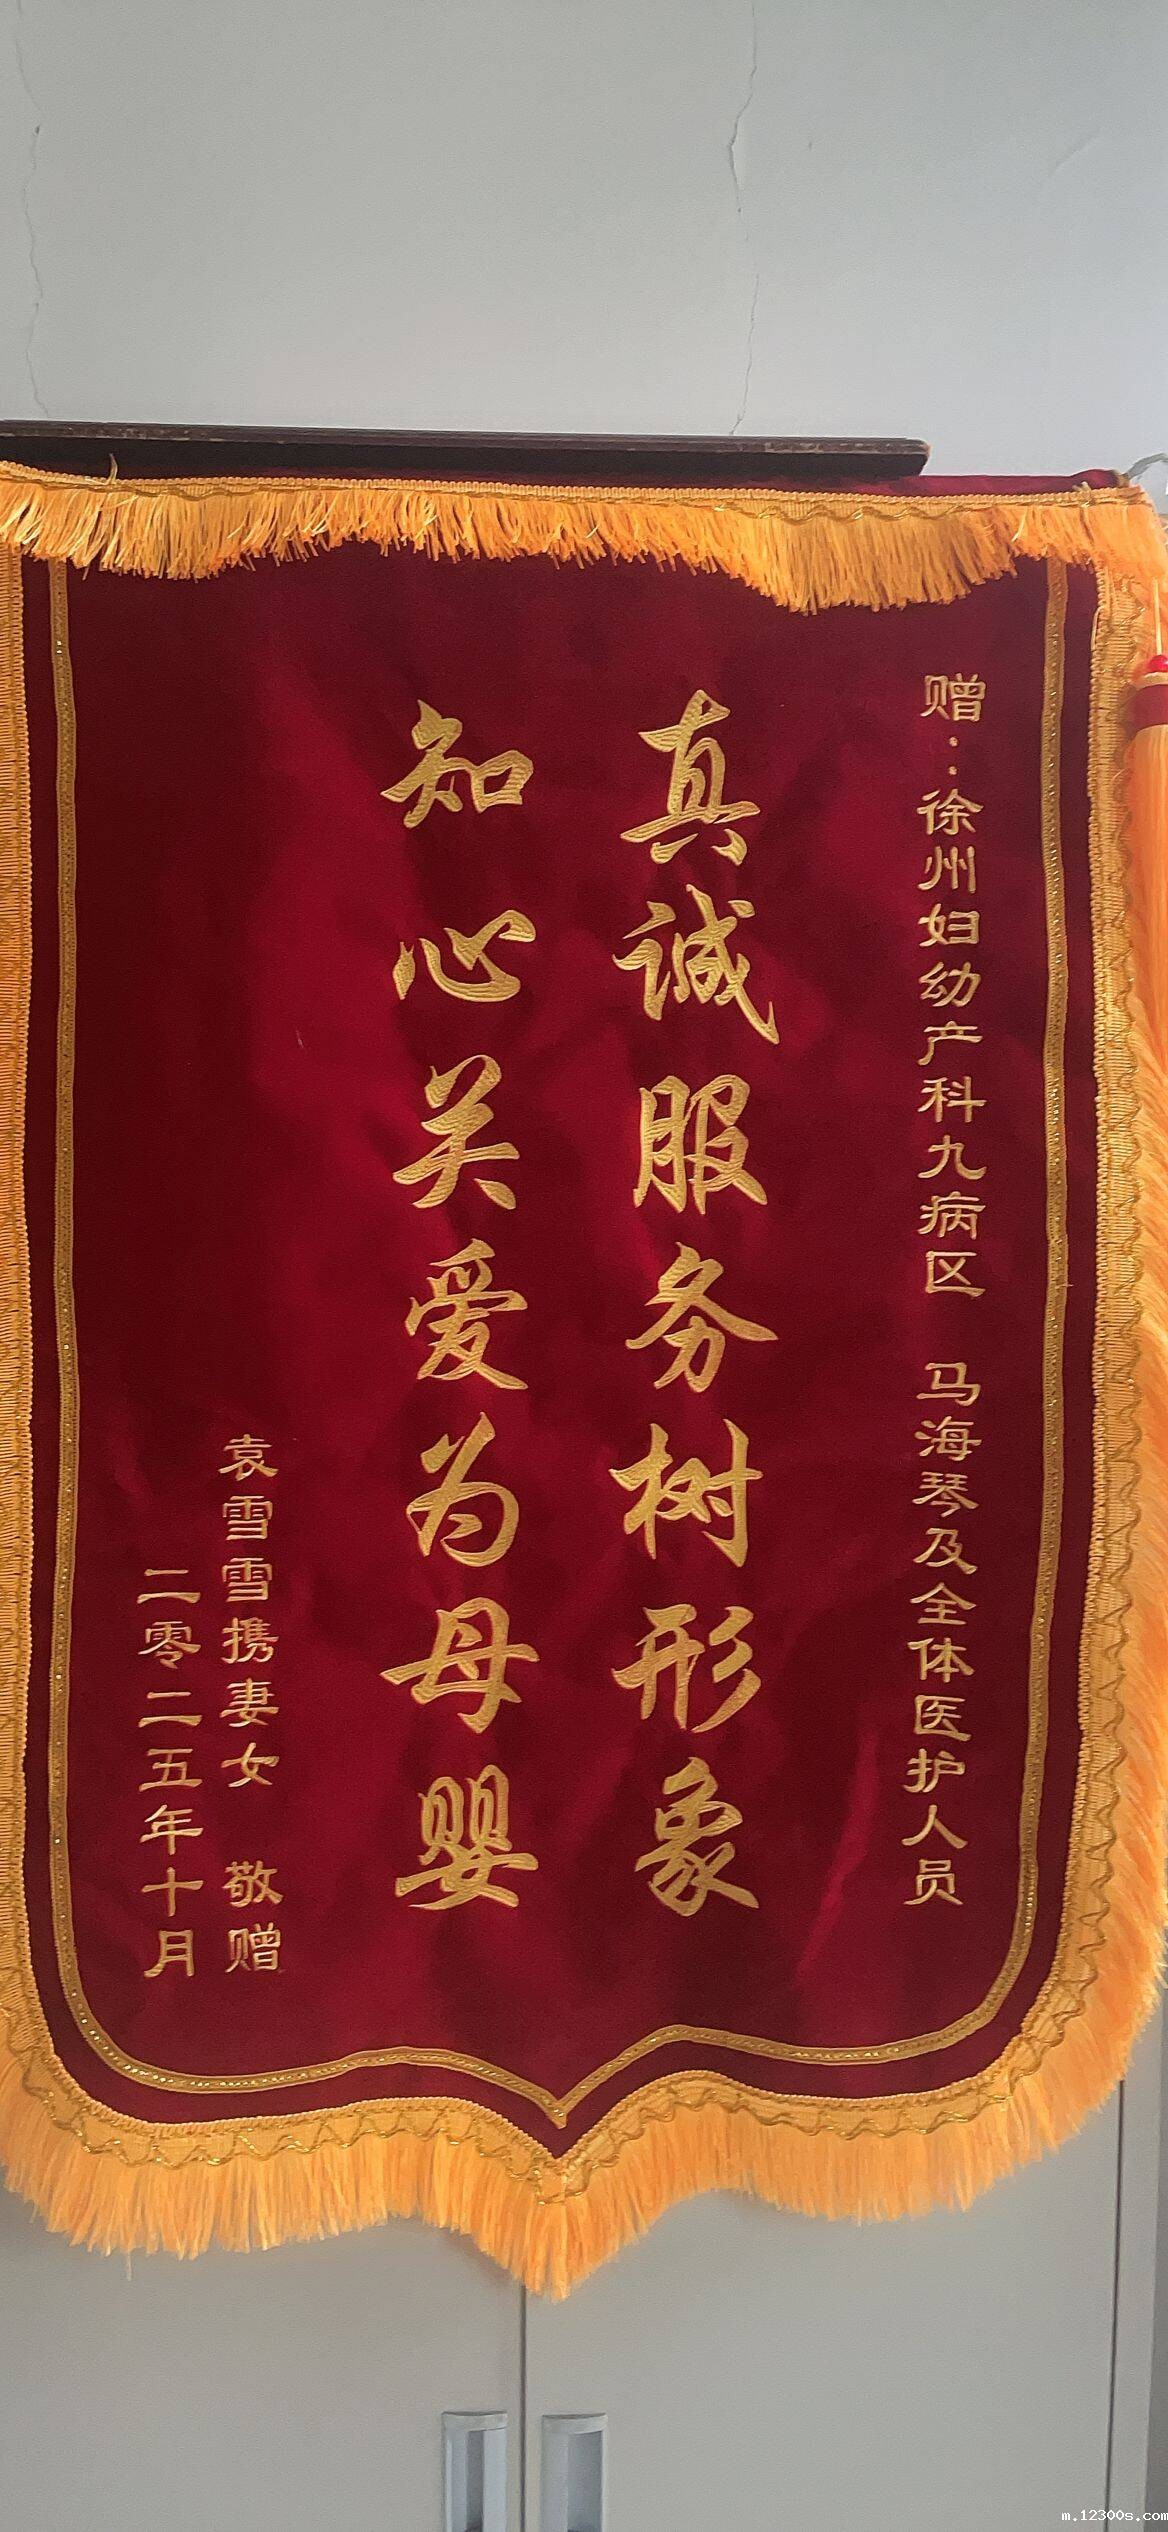 赠：徐州妇幼产科九病区 马海琴及全体医护人员
真诚服务树形象
知心关爱为母婴
袁雪雪携妻女 敬赠
二零二五年十月
m.12300s.com